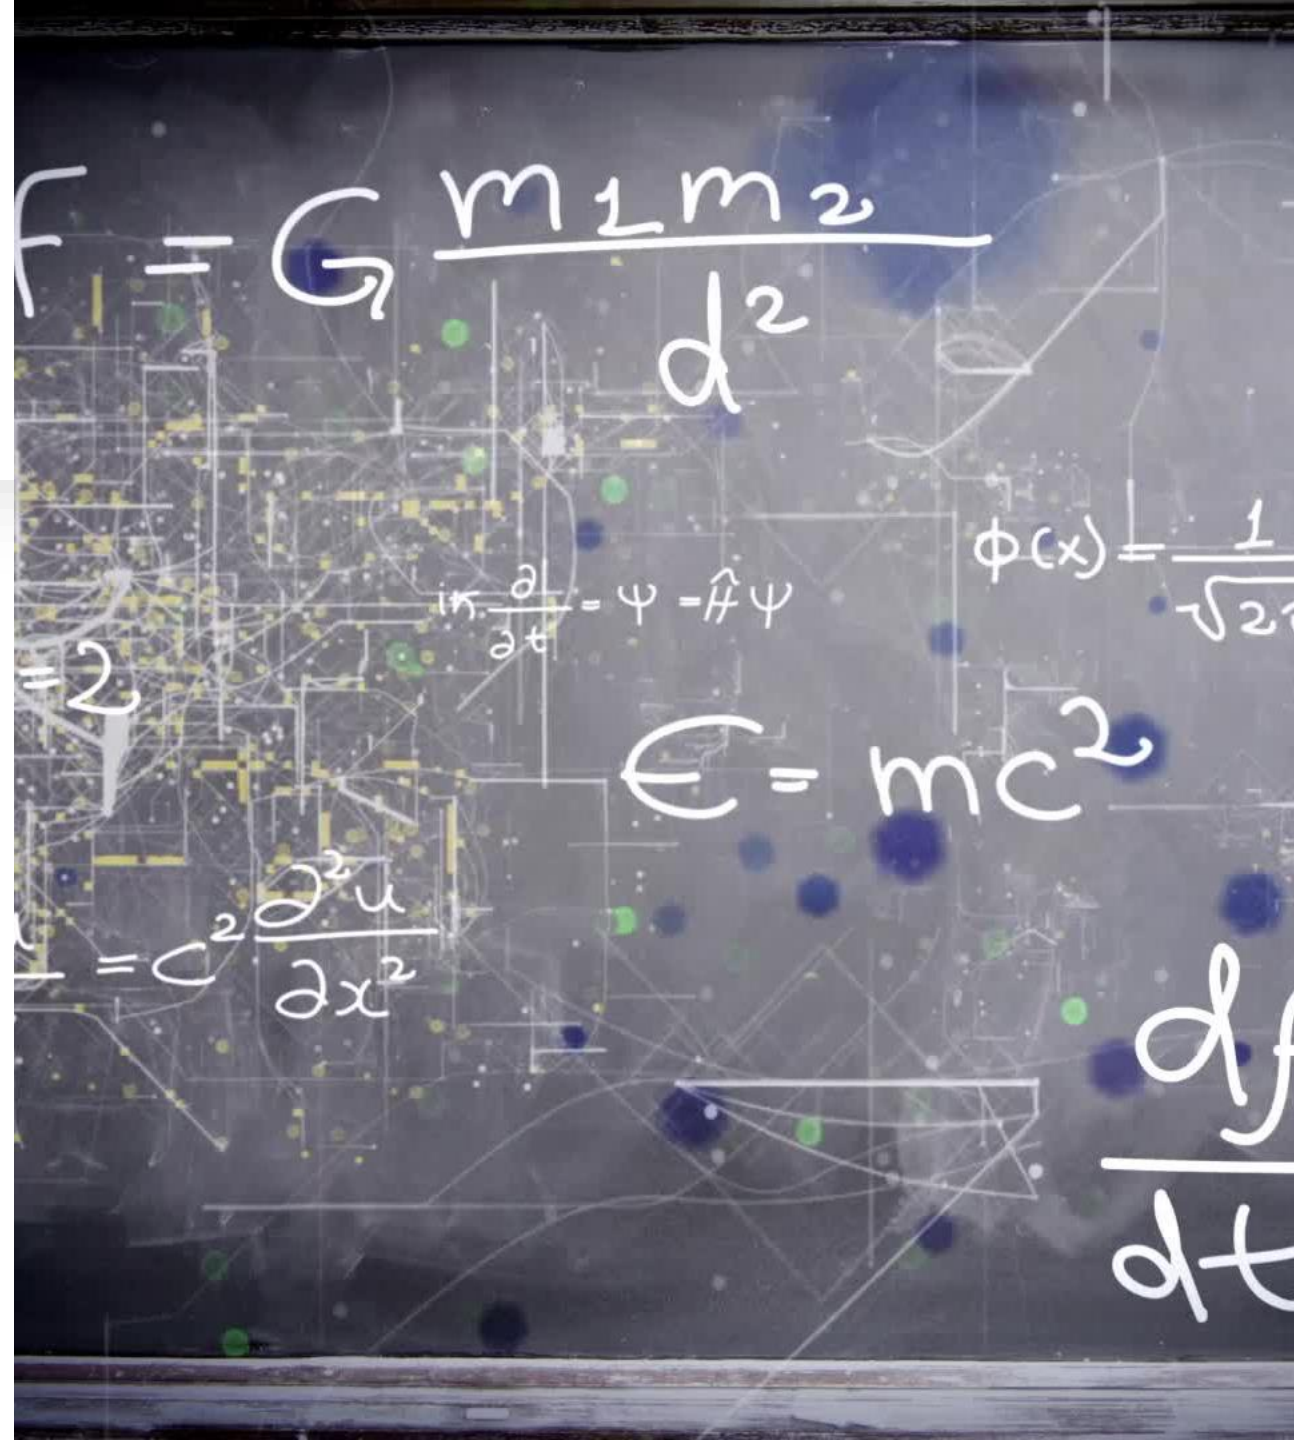 F = G m1m2/d²
iħ ∂/∂t = Ψ = Ĥ Ψ
φ(x) = 1/√2
= 2
E = mc²
= c² ∂²u/∂x²
df/dt